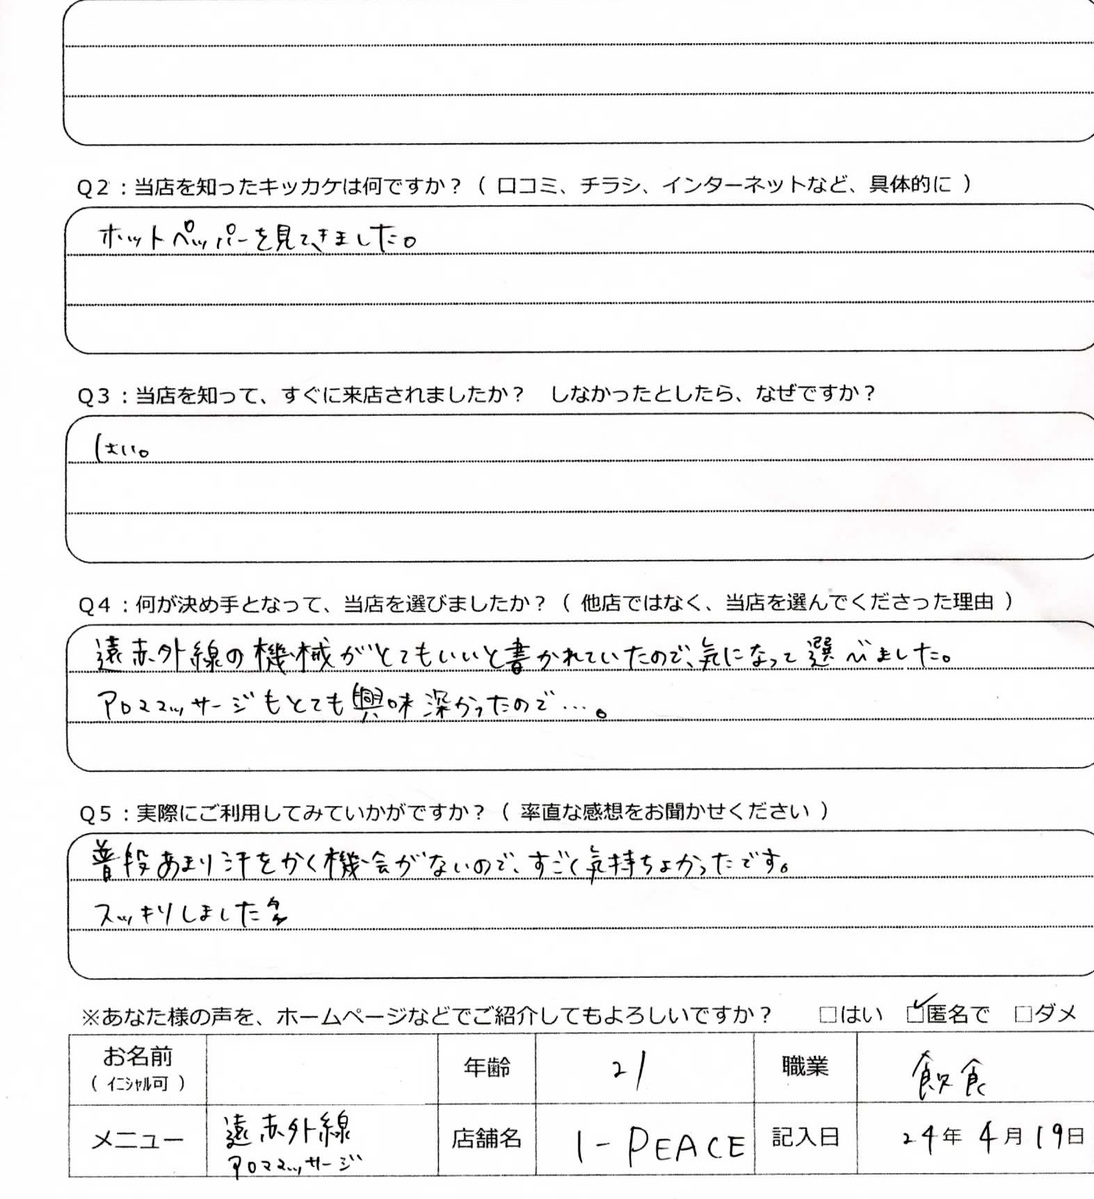 Q2:当店を知ったキッカケは何ですか?( 口コミ、チラシ、インターネットなど、具体的に )
ホットペッパーを見てきました。
Q3:当店を知って、すぐに来店されましたか? しなかったとしたら、なぜですか?
はい。
Q4:何が決め手となって、当店を選びましたか?( 他店ではなく、当店を選んでくださった理由 )
遠赤外線の機械がとてもいいと書かれていたので、気になって選べました。
アロママッサージもとても興味深かったので…。
Q5:実際にご利用してみていかがですか?( 率直な感想をお聞かせください )
普段あまり汗をかく機会がないので、すごく気持ちよかったです。
スッキリしました
※あなた様の声を、ホームページなどでご紹介してもよろしいですか? □はい ☑匿名で □ダメ
お名前 年齢 21 職業 飲食
( イニシャル可 )
メニュー 遠赤外線 店舗名 I-PEACE 記入日 24年4月19日
アロママッサージ